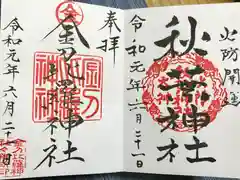 火防開運
秋葉神社
令和元年六月二十一日
奉拝
金刀比羅神社
令和元年六月二十一日